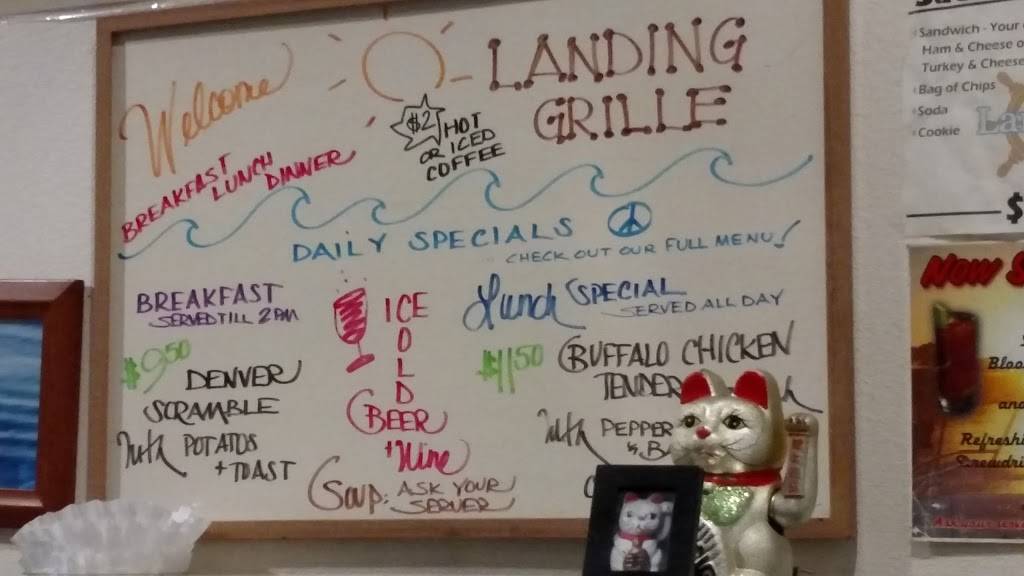 Welcome
LANDING
GRILLE
$2 HOT
OR ICED
COFFEE
BREAKFAST
LUNCH
DINNER
DAILY SPECIALS
CHECK OUT OUR FULL MENU!
BREAKFAST
SERVED TILL 2PM
$9.50
DENVER
SCRAMBLE
With POTATOS
+ TOAST
ICE
COLD
BEER
+ Wine
Soup: ASK YOUR
SERVER
Lunch SPECIAL
SERVED ALL DAY
$11.50 BUFFALO CHICKEN
TENDER
With PEPPER
Sandwich - Your
Ham & Cheese o
Turkey & Cheese
Bag of Chips
Soda
Cookie
$
Now S
Bloo
and
Refreshi